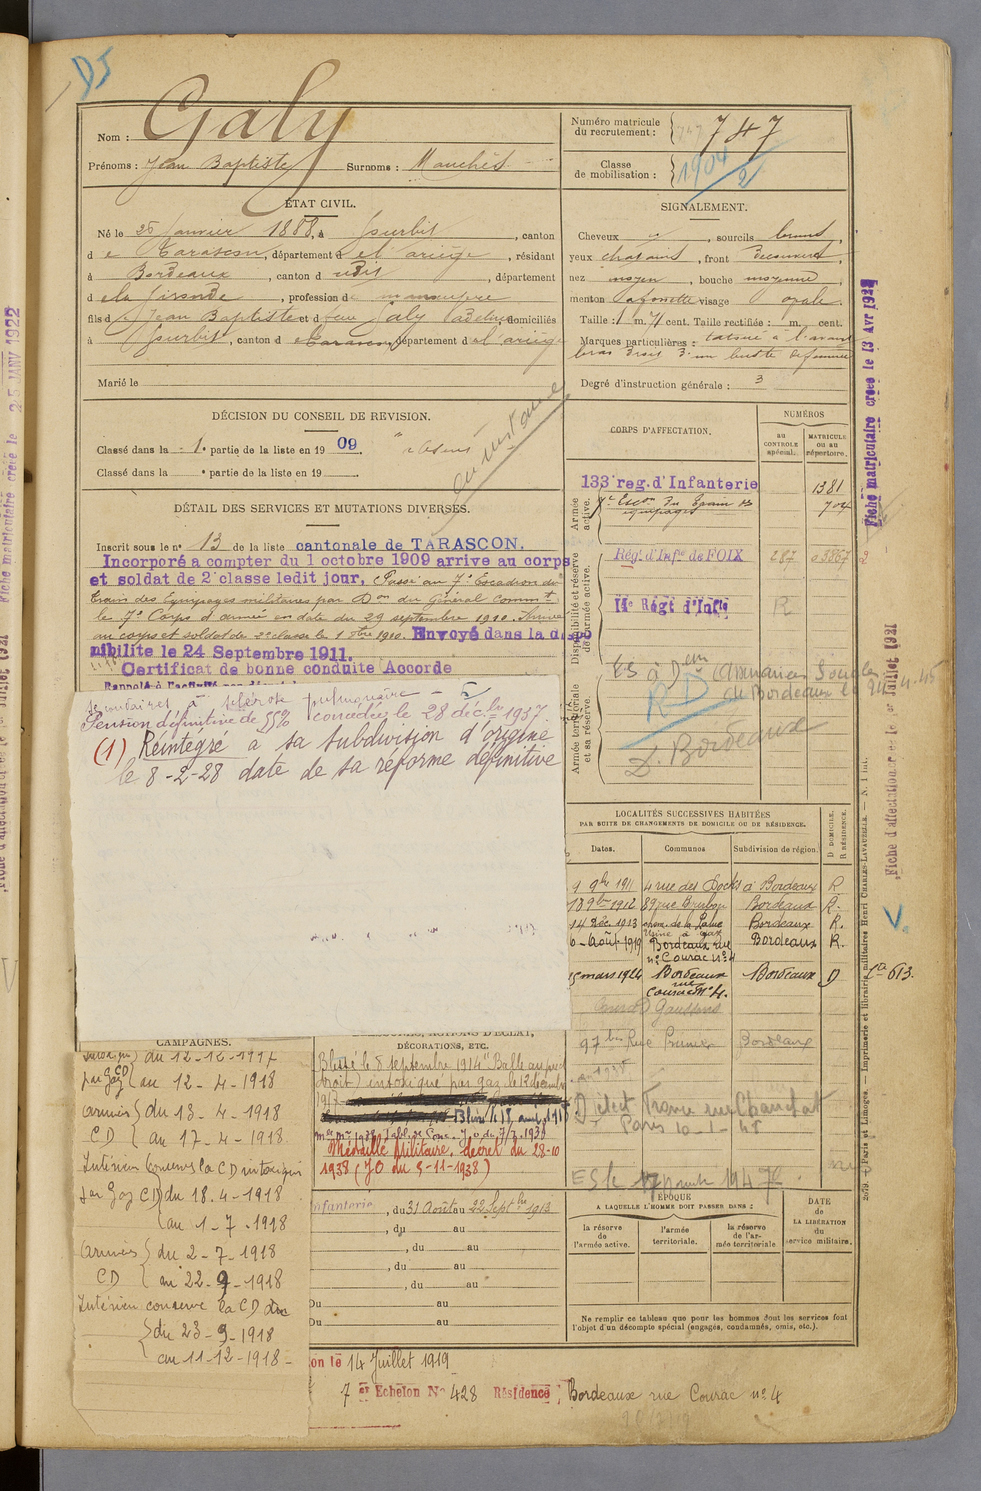 D5
Nom : Galy
Prénoms : Jean Baptiste Surnoms : Manchés
Numéro matricule du recrutement : 747
Classe de mobilisation : 1904/2
ÉTAT CIVIL.
Né le 25 Janvier 1888, à Gourbit, canton
de Tarascon, département de l'ariège, résidant
à Bordeaux, canton d udit, département
de la Gironde, profession de manœuvre
fils de Jean Baptiste et d feue Galy domiciliés
à Gourbit, canton de Tarascon département de l'ariège
Marié le
SIGNALEMENT.
Cheveux , sourcils bruns,
yeux chatains, front découvert,
nez moyen, bouche moyenne
menton à fossette visage ovale.
Taille : 1 m. 71 cent. Taille rectifiée : m. cent.
Marques particulières : tatoué à l'avant
bras droit un buste de femme
Degré d'instruction générale : 3
DÉCISION DU CONSEIL DE REVISION.
Classé dans la 1e partie de la liste en 1909.
Classé dans la e partie de la liste en 19
DÉTAIL DES SERVICES ET MUTATIONS DIVERSES.
Inscrit sous le n° 13 de la liste cantonale de TARASCON.
Incorporé a compter du 1 octobre 1909 arrive au corps
et soldat de 2e classe ledit jour, Passé au 7e Escadron du
train des Equipages militaires par Don du Général Commt
le 7e Corps d'armée en date du 29 septembre 1910. Arrivé
au corps et soldat de 2e classe le 1 8bre 1910. Envoyé dans la dispo
nibilite le 24 Septembre 1911.
Certificat de bonne conduite Accorde
à sclérose pulmonaire
Pension définitive de 55% concedée le 28 déc.bre 1937.
(1) Réintégré a sa subdivision d'origine
le 8-2-28 date de sa réforme définitive
CORPS D'AFFECTATION.
NUMÉROS
au CONTROLE spécial.
MATRICULE ou au répertoire.
Armée active.
133e reg. d'Infanterie 1381
7e Escon du Train des équipages 704
Disponibilité et réserve de l'armée active.
Régt d'Infie de FOIX 287
Régt d'Infie R
Armée territoriale et sa réserve
RD
D. Bordeaux
LOCALITÉS SUCCESSIVES HABITÉES
PAR SUITE DE CHANGEMENTS DE DOMICILE OU DE RÉSIDENCE.
Dates. Communes Subdivision de région. D DOMICILE. R RÉSIDENCE.
9 9bre 1911 4 rue des Docks à Bordeaux R
1912 89 rue Bordeaux R.
14 Déc. 1913 Bordeaux R.
Usine à gaz
6-Août-1919 Bordeaux rue Bordeaux R.
n° Courac n° 4
15 mars 1924 Bordeaux Bordeaux D
rue
Courac N° 4.
97 bis Rue Bordeaux
Paris 10-1-
1947
La 613.
CAMPAGNES.
DÉCORATIONS, ETC.
du 12-12-1917
par gaz CD au 12-4-1918
armées du 13-4-1918
CD au 17-4-1918
Intérieur conserve la CD intoxiqué
par Gaz CD du 18-4-1918
au 1-7-1918
armées du 2-7-1918
CD au 22-9-1918
Intérieur conserve la CD
du 23-9-1918
au 11-12-1918-
Blessé le 5 septembre 1914 "Balle au pied
droit) intoxiqué par gaz, le 12 décembre
1917
Blessé le 18 avril 1918
Médaille Militaire, décret du 28-10
1938 (JO du 5-11-1938)
Infanterie, du 31 Août au 22 Septbre 1913
, du au
, du au
, du au
, du au
Du au
Du au
ÉPOQUE
A LAQUELLE L'HOMME DOIT PASSER DANS :
la réserve de l'armée active.
l'armée territoriale.
la réserve de l'armée territoriale
DATE de LA LIBÉRATION du service militaire.
Ne remplir ce tableau que pour les hommes dont les services font
l'objet d'un décompte spécial (engagés, condamnés, omis, etc.).
on le 14 Juillet 1919
7 er Echelon No 428 Résidence Bordeaux rue Courac n° 4
Fiche matriculaire créée le 13 Avr 192
Fiche d'affectation créée le Juillet 1921
Fiche matriculaire créée le 25 JANV 1922
Paris et Limoges. — Imprimerie et librairie militaires Henri CHARLES-LAVAUZELLE. — N. 1 int.